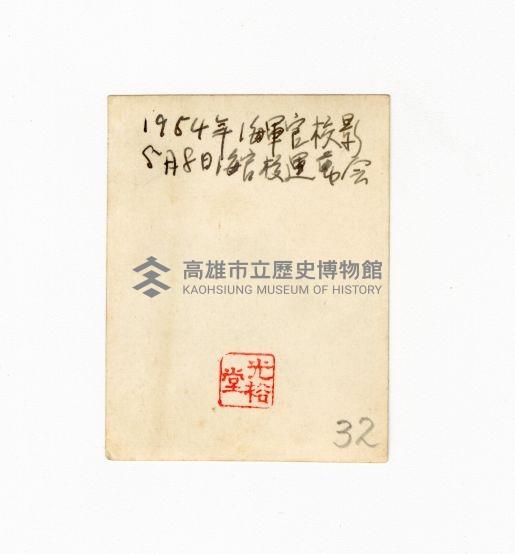 1954年海軍官校影
5月8日海官校運動会
高雄市立歷史博物館
KAOHSIUNG MUSEUM OF HISTORY
光裕堂
32